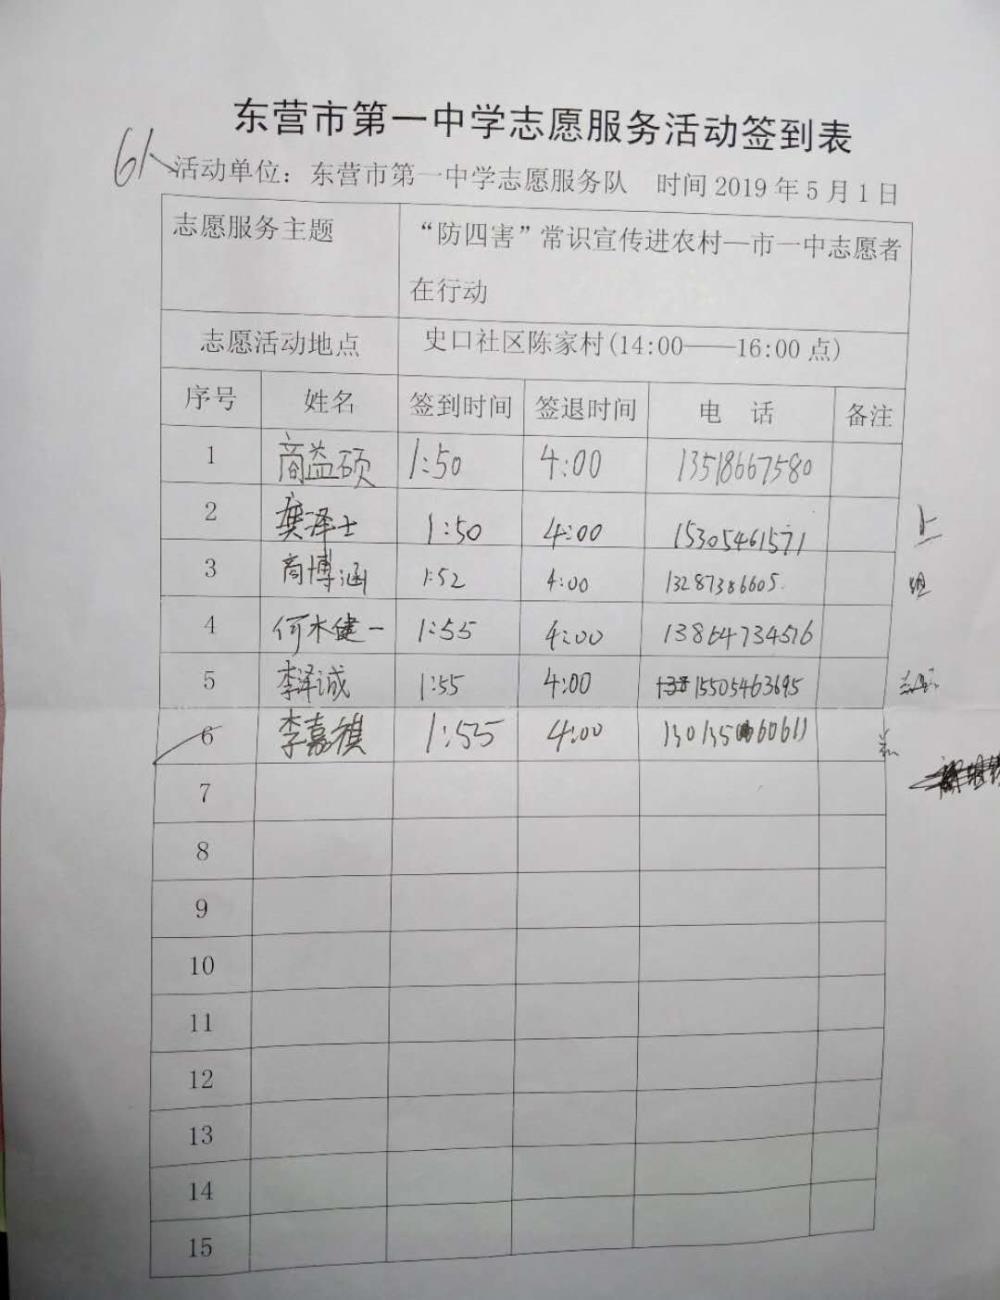 东营市第一中学志愿服务活动签到表
6人
活动单位：东营市第一中学志愿服务队 时间2019年5月1日
志愿服务主题 “防四害”常识宣传进农村—市一中志愿者
在行动
志愿活动地点 史口社区陈家村(14:00——16:00点)
序号 姓名 签到时间 签退时间 电 话 备注
1 商益硕 1:50 4:00 13518667580
2 龚泽士 1:50 4:00 15305461571
3 商博涵 1:52 4:00 13287386605.
4 何木健一 1:55 4:00 13864734516
5 李泽诚 1:55 4:00 15505463695
6 李嘉祺 1:55 4:00
7
8
9
10
11
12
13
14
15